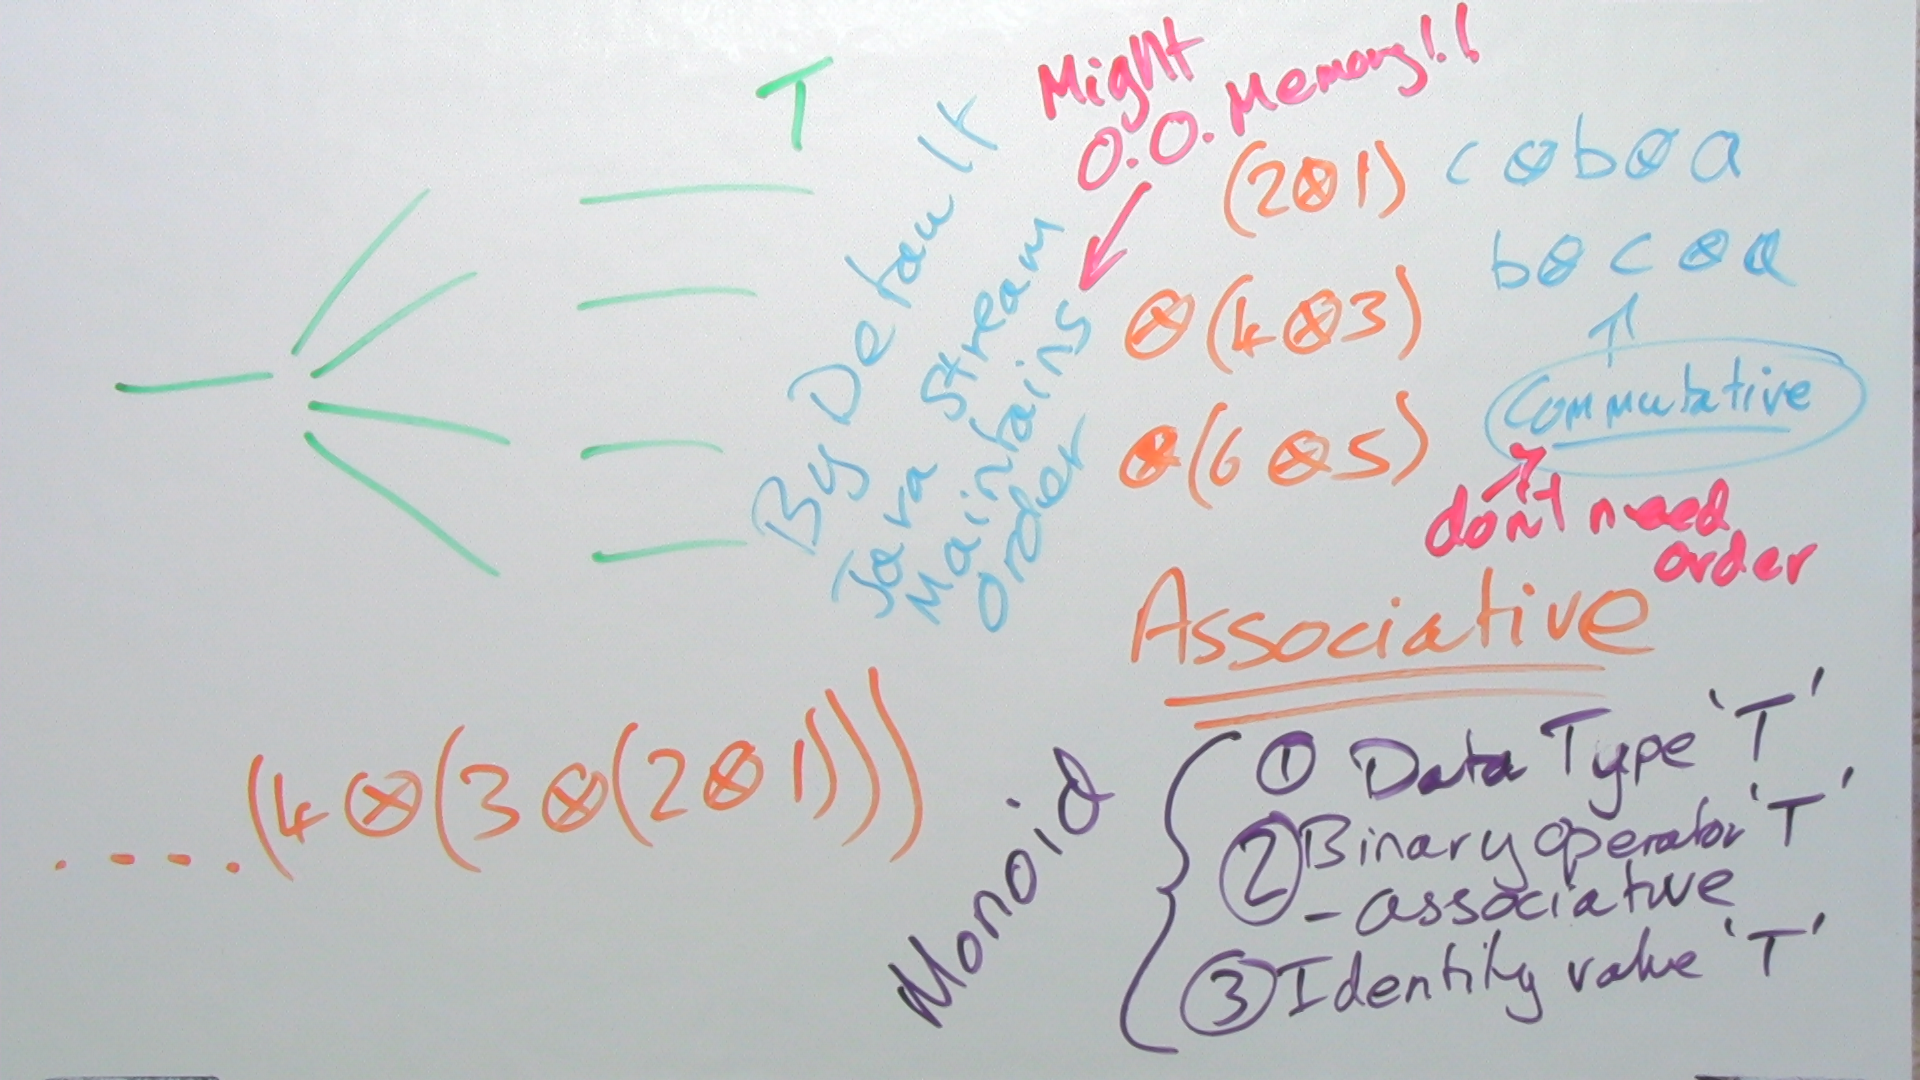 T
Might
O.O. Memory!!
By Default
Java Stream
Maintains
order
(2⊗1)
⊗(4⊗3)
⊗(6⊗5)
c⊗b⊗a
b⊗c⊗a
↑
Commutative
don't need
order
Associative
.....(4⊗(3⊗(2⊗1)))
Monoid
① Data Type 'T'
② Binary operator 'T'
- associative
③ Identity value 'T'